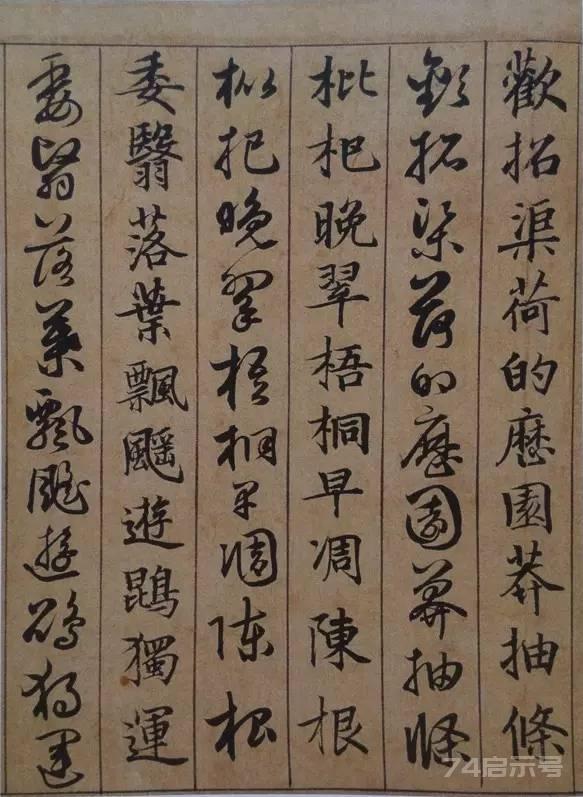 歡招渠荷的歷園莽抽條
歡招渠荷的歷園莽抽條
枇杷晚翠梧桐早凋陳根
枇杷晚翠梧桐早凋陳根
委翳落葉飄颻遊鵾獨運
委翳落葉飄颻遊鵾獨運
74启示号